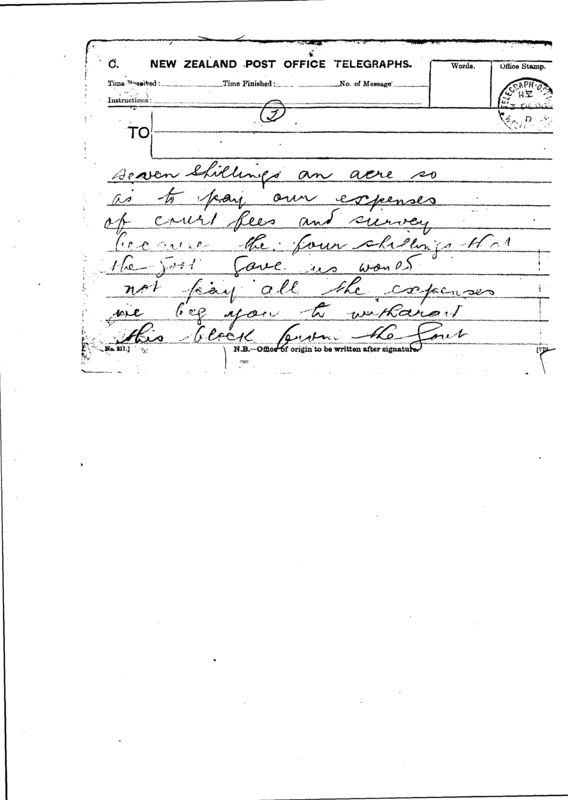 C. NEW ZEALAND POST OFFICE TELEGRAPHS.
Words. Office Stamp.
Time Received: Time Finished: No. of Message
Instructions:
TELEGRAPH-OFF
NZ
TO
seven shillings an acre so
as to pay our expenses
of court fees and survey
because the four shillings that
the Govt gave us would
not pay all the expenses
we beg you to withdraw
this block from the Govt
No. 821.] N.B.—Office of origin to be written after signature.